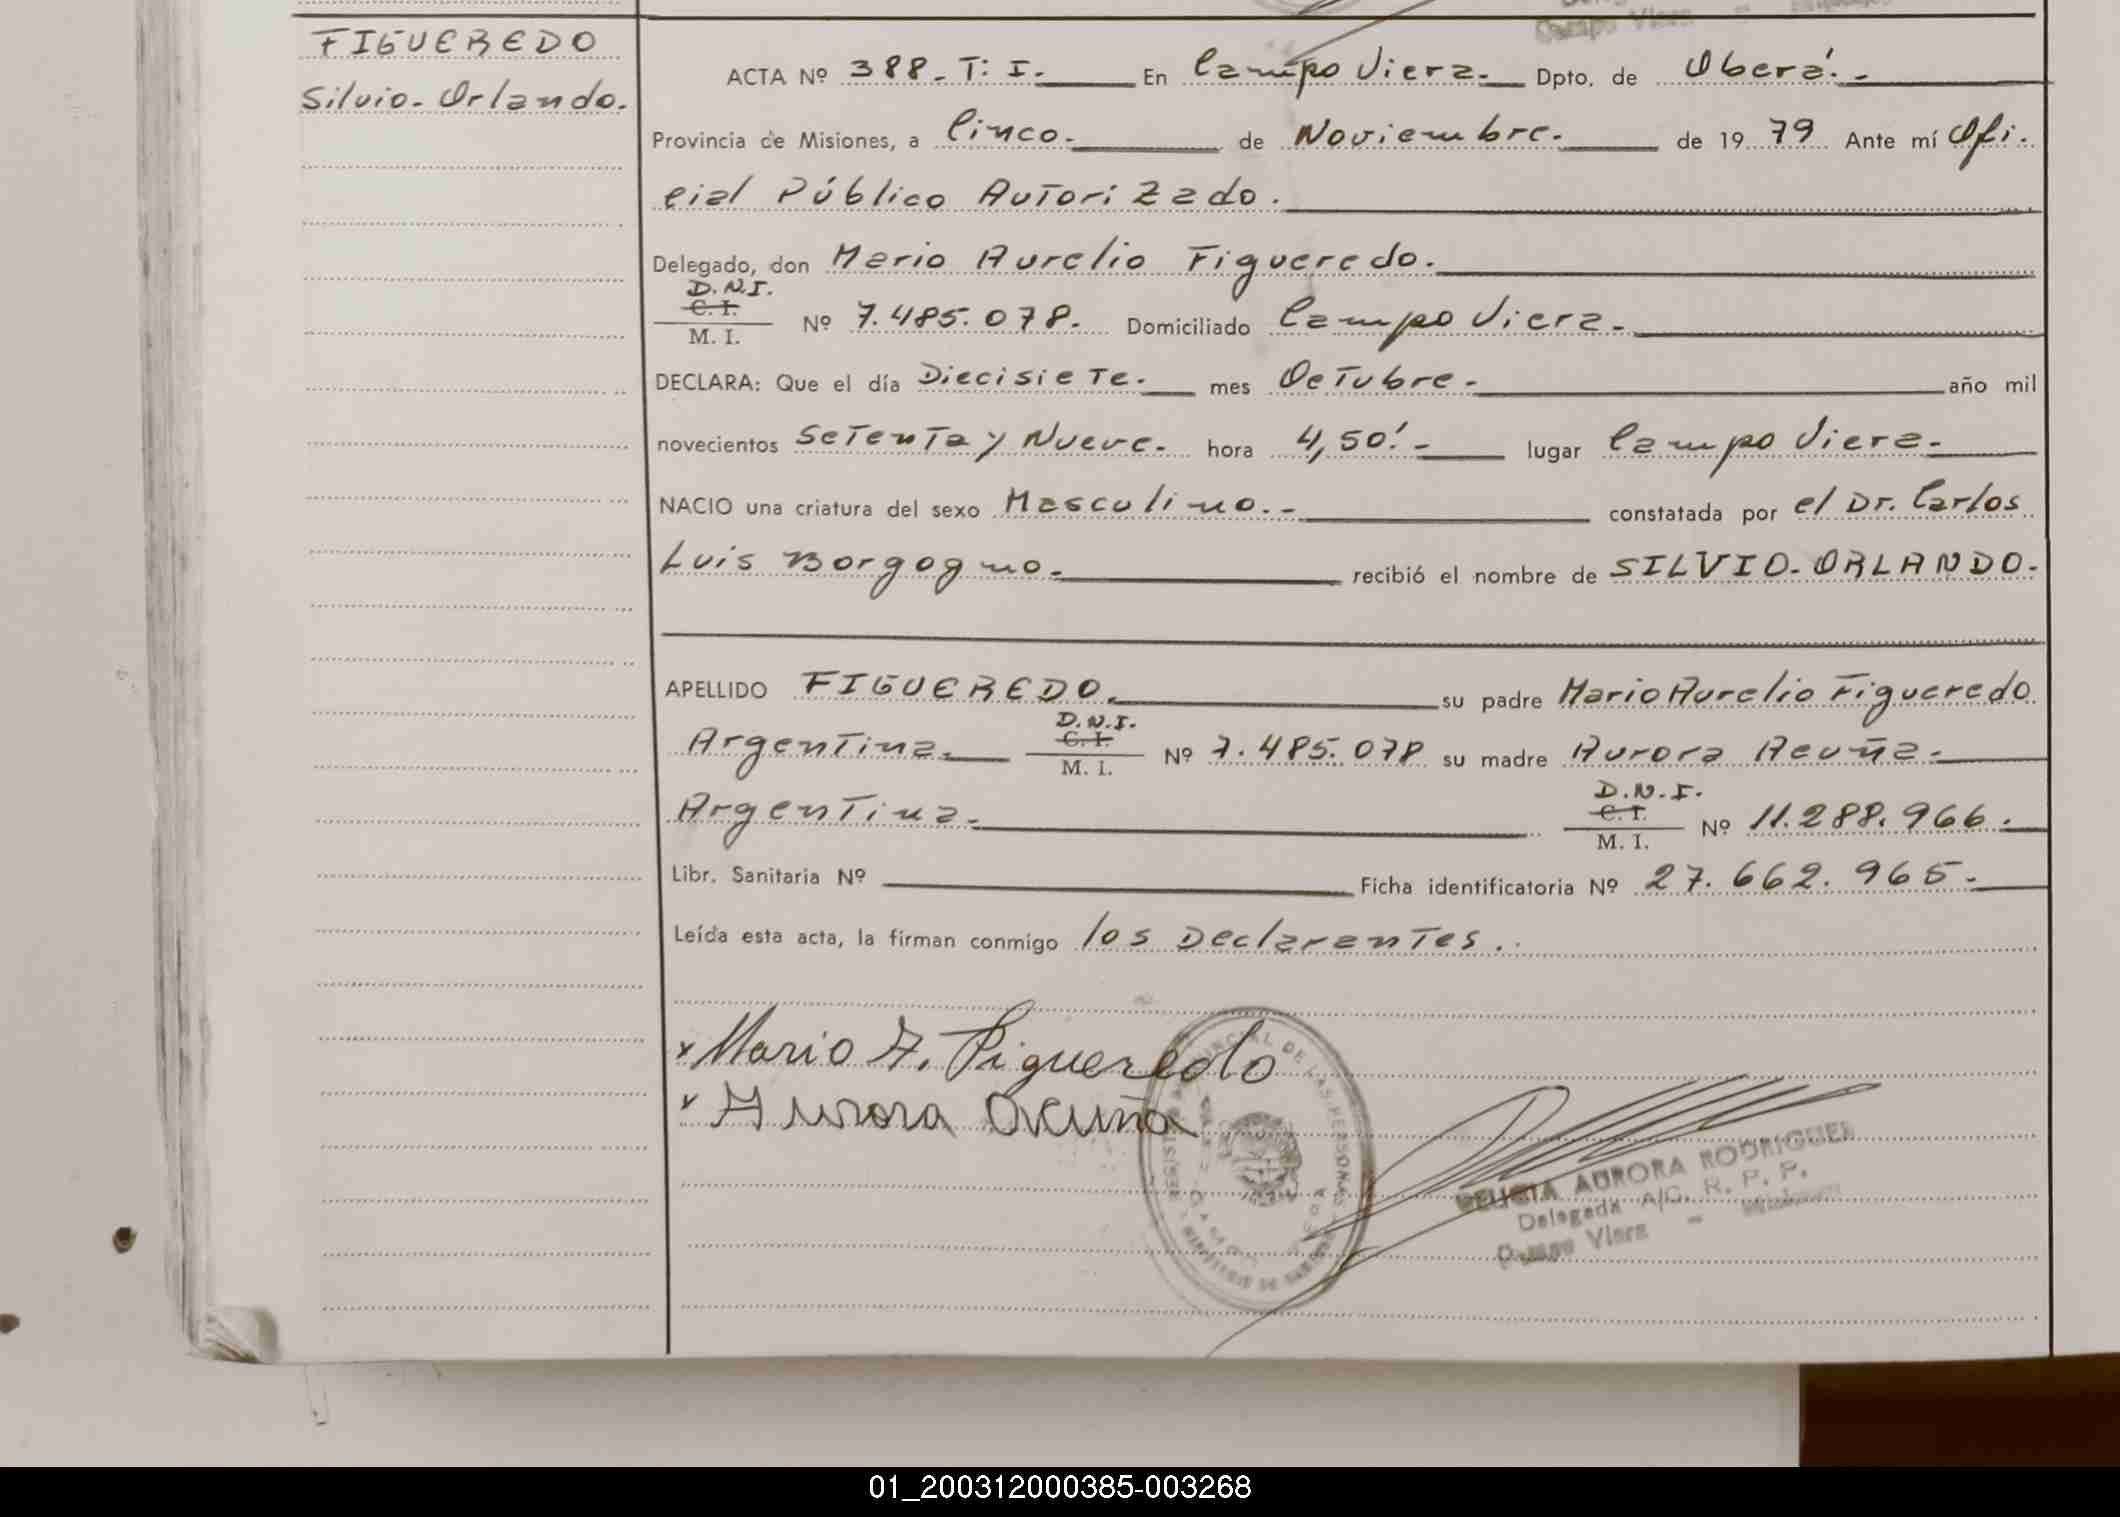 FIGUEREDO
Silvio-Orlando.
Campo Viera -
ACTA Nº 388-T: I. En Campo Viera.- Dpto. de Oberá.-
Provincia de Misiones, a Cinco. de Noviembre. de 1979 Ante mí Ofi.
cial Público Autorizado.
Delegado, don Mario Aurelio Figueredo.
D.N.I.
C. I.
M. I. Nº 7.485.078. Domiciliado Campo Viera.
DECLARA: Que el día Diecisiete. mes Octubre. año mil
novecientos Setenta y Nueve. hora 4,50'.- lugar Campo Viera.
NACIO una criatura del sexo Masculino.- constatada por el Dr. Carlos
Luis Borgogno. recibió el nombre de SILVIO-ORLANDO.
APELLIDO FIGUEREDO. su padre Mario Aurelio Figueredo
D.N.I.
C. I.
Argentina. M. I. Nº 7.485.078 su madre Aurora Acuña.
D.N.I.
C. I.
Argentina. M. I. Nº 11.288.966.
Libr. Sanitaria Nº Ficha identificatoria Nº 27.662.965.
Leída esta acta, la firman conmigo los Declarantes.
x Mario A. Figueredo
x Aurora Acuña
DE LAS PERSONAS
AURORA RODRIGUEZ
Delegada A/C. R. P. P.
Campo Viera -
01_200312000385-003268